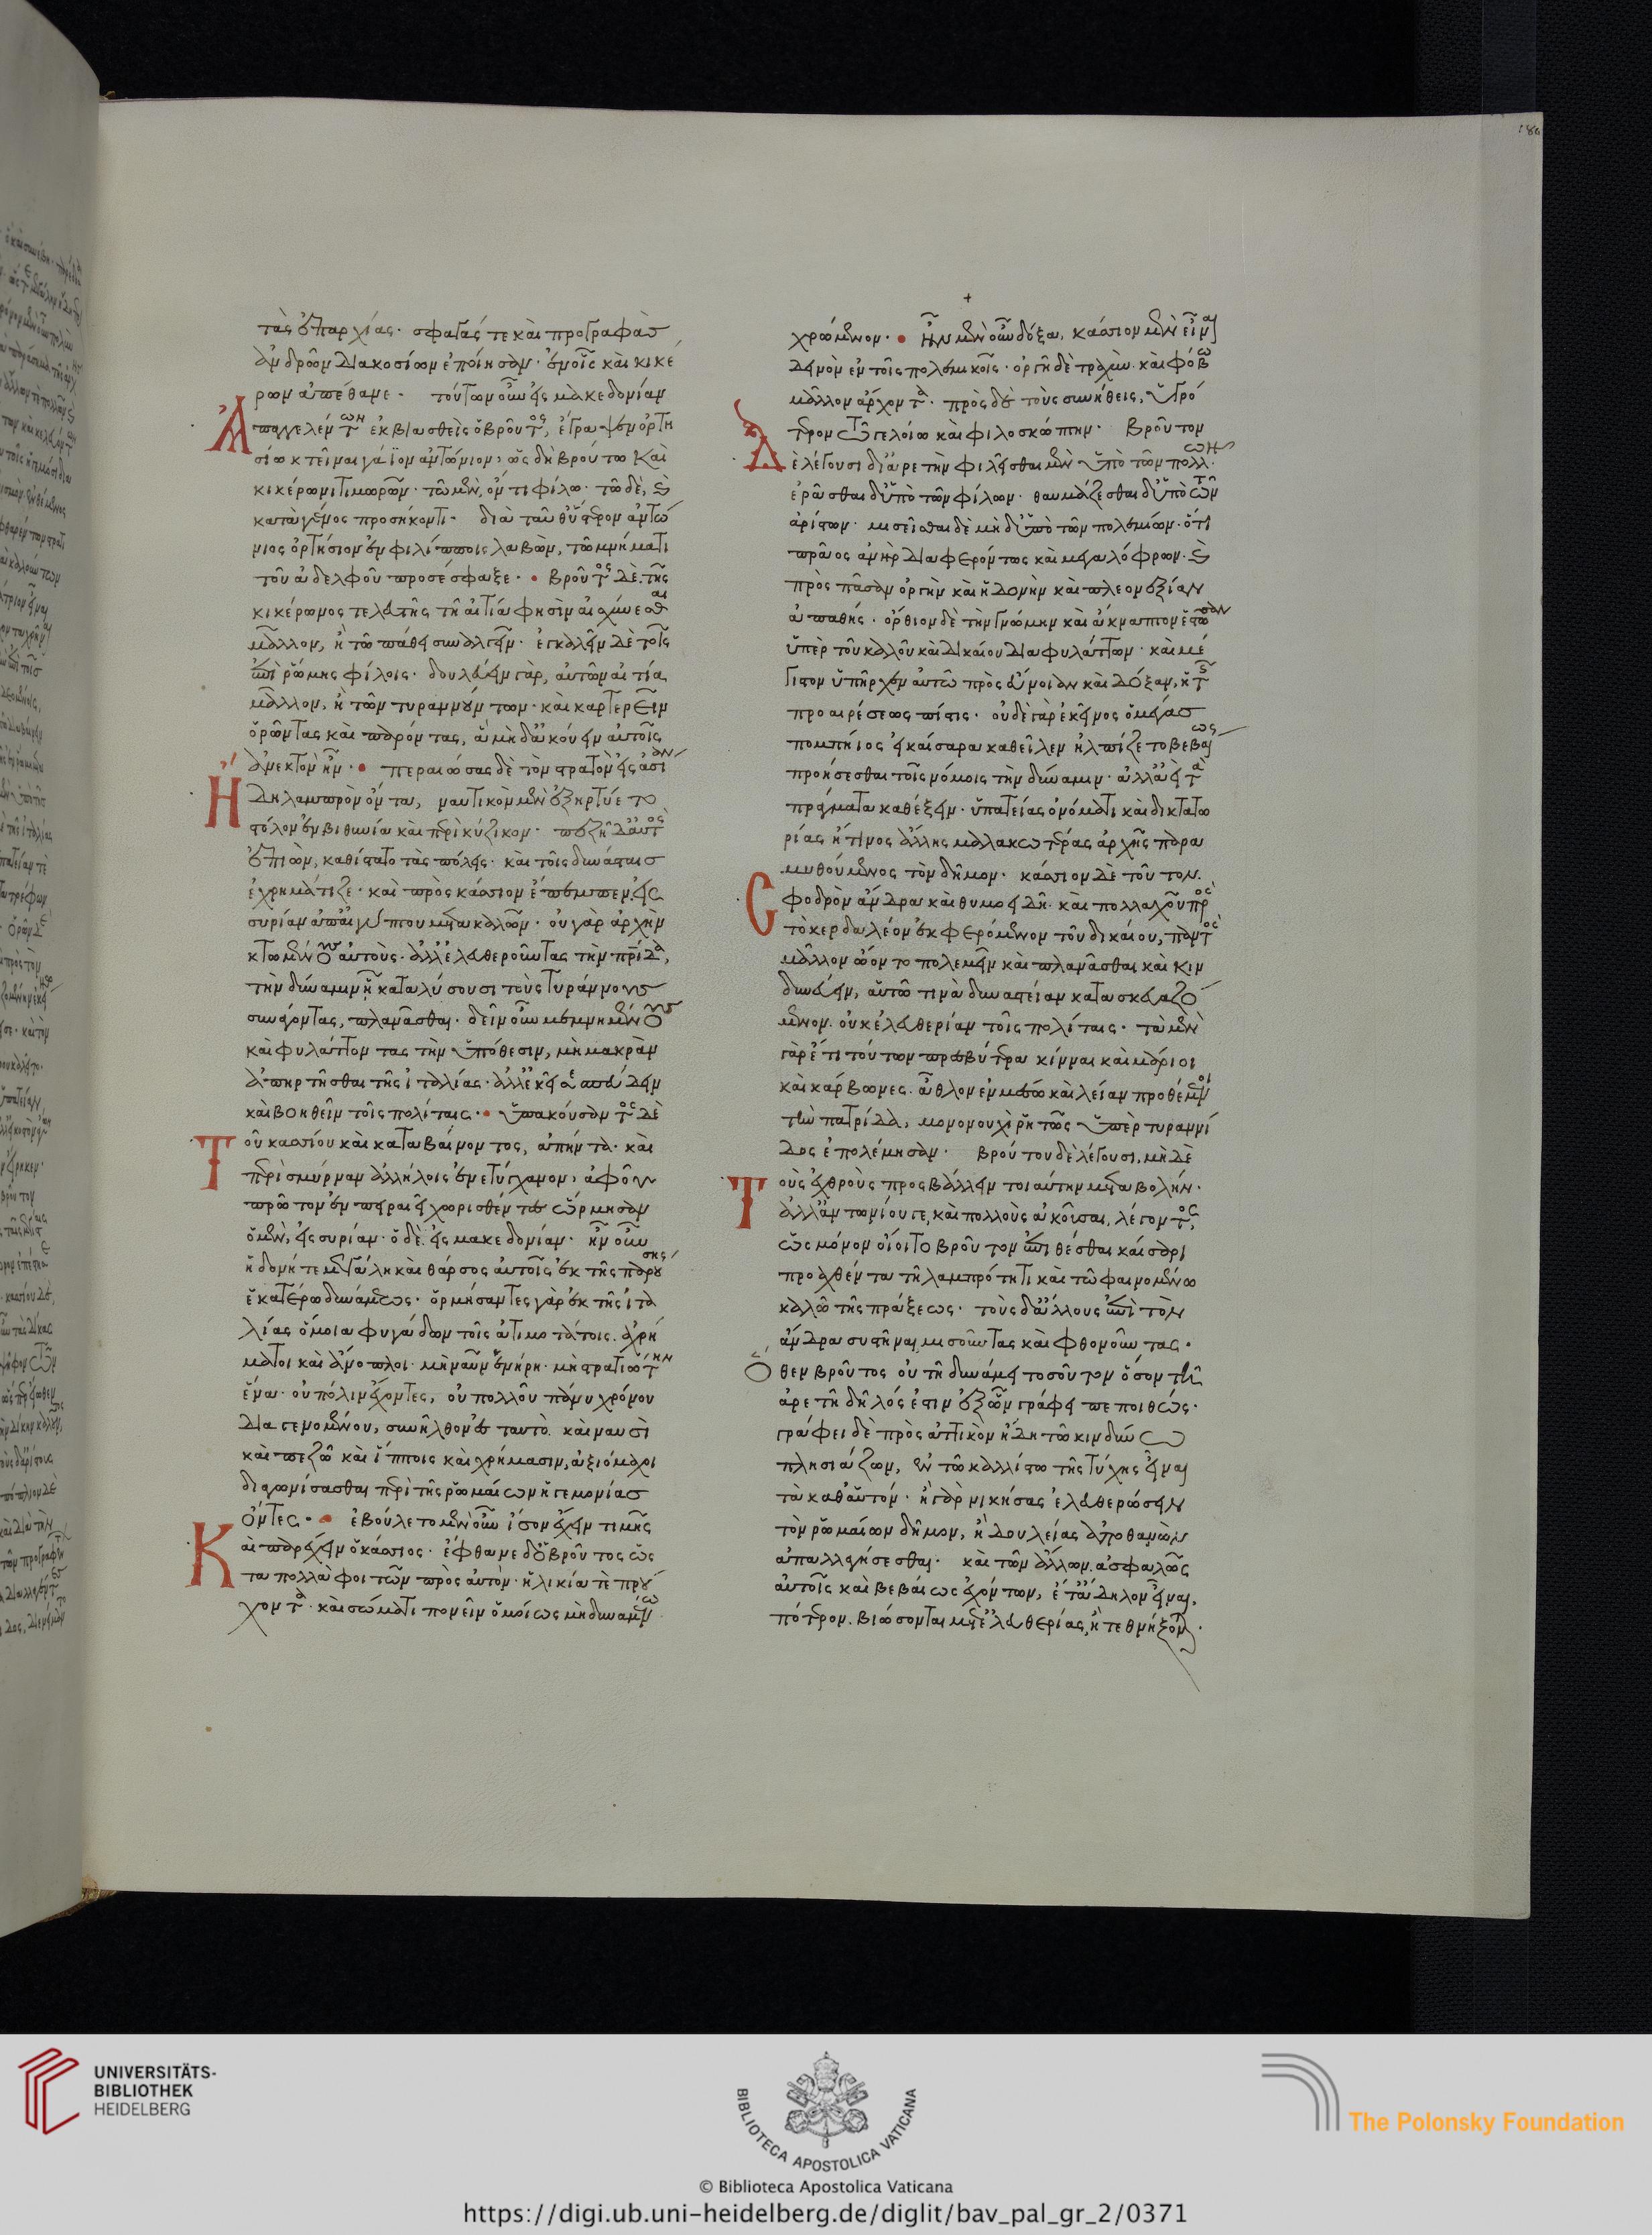 τὰς ἐπαρχίας· σφαγάς τε καὶ προγραφὰσ
ἀνδρῶν διακοσίων ἐποίησαν· ἐν οἷς καὶ κικέ
ρων ἀπέθανε· τούτων οὖν εἰς μακεδονίαν
ἀπαγγελέντων ἐκβιασθεὶς ὁ βροῦτος, ἔγραψεν ὁρτη
σίω κτεῖναι γάϊον ἀντώνιον, ὡς δὴ βρούτω καὶ
κικέρωνι τιμωρῶν· τῶ μὲν, ὄντι φίλω· τῶ δὲ, καὶ
κατὰ γένος προσήκοντι· διὰ ταῦθ' ὕστερον ἀντώ
νιος ὁρτήσιον ἐν φιλίπποις λαβὼν, τῶ μνήματι
τοῦ ἀδελφοῦ προσέσφαξε· βροῦτος δὲ τῆς
κικέρωνος τελευτῆς τῆ αἰτία φησὶν αἰσχύνεσθαι
μᾶλλον, ἢ τῶ πάθει συναλγεῖν· ἐγκαλεῖν δὲ τοῖς
ἐπὶ ῥώμης φίλοις· δουλεύειν γὰρ, αὐτῶν αἰτία
μᾶλλον, ἢ τῶν τυραννούντων· καὶ καρτερεῖν
ὁρῶντας καὶ παρόντας, ἃ μηδ' ἀκούειν αὐτοῖς
ἀνεκτὸν ἦν· περαιώσας δὲ τὸν στρατὸν εἰς ἀσίαν
ἤδη λαμπρὸν ὄντα, ναυτικὸν μὲν ἐξηρτύετο
στόλον ἐν βιθυνία καὶ περὶ κύζικον· πεζῆ δ' αὐτὸς
ἐπιὼν, καθίστατο τὰς πόλεις· καὶ τοῖς δυνάσταισ
ἐχρημάτιζε· καὶ πρὸς κάσσιον ἔπεμπεν εἰς
συρίαν ἀπ' αἰγύπτου μετακαλῶν· οὐ γὰρ ἀρχὴν
κτωμένους αὐτοὺς· ἀλλ' ἐλευθεροῦντας τὴν πατρίδα,
τὴν δύναμιν ἧ καταλύσουσι τοὺς τυράννους
συνάγοντας, πλανᾶσθαι· δεῖν οὖν μεμνημένους
καὶ φυλάττοντας τὴν ὑπόθεσιν, μὴ μακρὰν
ἀπηρτῆσθαι τῆς ἰταλίας· ἀλλ' ἐκεῖ σπεύδειν
καὶ βοηθεῖν τοῖς πολίταις· ὑπακούσαντος δὲ
τοῦ κασσίου καὶ καταβαίνοντος, ἀπήντα· καὶ
περὶ σμύρναν ἀλλήλοις ἐνετύγχανον, ἀφ' οὗ
πρῶτον ἐν πειραιεῖ χωρισθέντες ὥρμησαν
ὁ μὲν, εἰς συρίαν· ὁ δὲ εἰς μακεδονίαν· ἦν οὖν
ἡδονή τε μεγάλη καὶ θάρσος αὐτοῖς ἐκ τῆς παρούσης
ἑκατέρω δυνάμεως· ὁρμήσαντες γὰρ ἐκ τῆς ἰτα
λίας ὅμοια φυγάδων τοῖς ἀτιμοτάτοις. ἀχρή
ματοι καὶ ἄνοπλοι· μὴ ναῦν ἐνήρη· μὴ στρατιώτην
ἕνα· οὐ πόλιν ἔχοντες, οὐ πολλοῦ πάνυ χρόνου
διαγενομένου, συνῆλθον εἰς ταυτὸ. καὶ ναυσὶ
καὶ πεζῶ καὶ ἵπποις καὶ χρήμασιν, ἀξιόμαχοι
διαγωνίσασθαι περὶ τῆς ῥωμαίων ἡγεμονίασ
ὄντες· ἐβούλετο μὲν οὖν ἴσον ἔχειν τιμῆς
καὶ παρέχειν ὁ κάσσιος· ἔφθανε δ' ὁ βροῦτος ὡς
τα πολλὰ φοιτῶν πρὸς αὐτὸν· ἡλικία τὲ πρού
χοντα· καὶ σώματι πονεῖν ὁμοίως μὴ δυναμένω
χρώμενον· ἦν μὲν οὖν δόξα, κάσσιον μὲν εἶναι
δεινὸν ἐν τοῖς πολεμικοῖς· ὀργῆ δὲ τραχὺν· καὶ φόβω
μᾶλλον ἄρχοντα· πρὸς δὲ τοὺς συνήθεις, ὑγρό
τερον τῶ γελοίω καὶ φιλοσκώπτην· βροῦτον
δὲ λέγουσι δι' ἀρετὴν φιλεῖσθαι μὲν ὑπὸ τῶν πολλῶν·
ἐρᾶσθαι δ' ὑπὸ τῶν φίλων· θαυμάζεσθαι δ' ὑπὸ τῶν
ἀρίστων· μισεῖσθαι δὲ μὴ δ' ὑπὸ τῶν πολεμίων· ὅτι
πρᾶος ἀνὴρ διαφερόντως καὶ μεγαλόφρων· καὶ
πρὸς πᾶσαν ὀργὴν καὶ ἡδονὴν καὶ πλεονεξίαν
ἀπαθής· ὄρθιον δὲ τὴν γνώμην καὶ ἄκναπτον ἑστῶσαν
ὑπὲρ τοῦ καλοῦ καὶ δικαίου διαφυλάττων· καὶ μέ
γιστον ὑπῆρχεν αὐτῶ πρὸς εὔνοιαν καὶ δόξαν, ἡ τῆς
προαιρέσεως πίστις· οὐδὲ γὰρ ἐκεῖνος ὁ μέγασ
πομπήιος εἰ καίσαρα καθεῖλεν ἠλπίζετο βεβαίως
προήσεσθαι τοῖς νόμοις τὴν δύναμιν· ἀλλ' ἀεὶ τὰ
πράγματα καθέξειν· ὑπατείας ὀνόματι καὶ δικτατω
ρίας ἤ τινος ἄλλης μαλακωτέρας ἀρχῆς παρα
μυθούμενος τὸν δῆμον· κάσσιον δὲ τοῦτον.
σφοδρὸν ἄνδρα καὶ θυμοειδῆ· καὶ πολλαχοῦ πρὸς
τὸ κερδαλέον ἐκφερόμενον τοῦ δικαίου, παντὸς
μᾶλλον ὤοντο πολεμεῖν καὶ πλανᾶσθαι καὶ κιν
δυνεύειν, αὑτῶ τινὰ δυναστείαν κατασκευαζό
μενον. οὐκ ἐλευθερίαν τοῖς πολίταις· τὰ μὲν
γὰρ ἔτι τούτων πρεσβύτερα κίνναι καὶ μάριοι
καὶ κάρβωνες. ἆθλον ἐν μέσω καὶ λείαν προθέμενοι
τὴν πατρίδα, μονονουχὶ ῥητῶς ὑπὲρ τυραννί
δος ἐπολέμησαν· βρούτου δὲ λέγουσι, μὴ δὲ
τοὺς ἐχθροὺς προσβάλλειν τοιαύτην μεταβολήν·
ἀλλ' ἀντωνίου γε, καὶ πολλοὺς ἀκοῦσαι, λέγοντος,
ὡς μόνον οἴοιτο βροῦτον ἐπιθέσθαι καίσαρι
προαχθέντα τῆ λαμπρότητι καὶ τῶ φαινομένω
καλῶ τῆς πράξεως· τοὺς δ' ἄλλους ἐπὶ τὸν
ἄνδρα συστῆναι, μισοῦντας καὶ φθονοῦντας·
ὅθεν βροῦτος οὐ τῆ δυνάμει τοσοῦτον ὅσον τῆ
ἀρετῆ δῆλός ἐστιν ἐξ ὧν γράφει πεποιθώς·
γράφει δὲ πρὸς ἀττικὸν ἤδη τῶ κινδύνω
πλησιάζων, ἐν τῶ καλλίστω τῆς τύχης εἶναι
τὰ καθ' αὑτόν· ἢ γὰρ νικήσας ἐλευθερώσειν
τὸν ῥωμαίων δῆμον, ἢ δουλείας ἀποθανὼν
ἀπαλλαγήσεσθαι· καὶ τῶν ἄλλων ἀσφαλῶς
αὐτοῖς καὶ βεβαίως ἐχόντων, ἓν ἔτ' ἄδηλον εἶναι,
πότερον. βιώσονται μετ' ἐλευθερίας, ἢ τεθνήξονται·
UNIVERSITÄTS-
BIBLIOTHEK
HEIDELBERG
BIBLIOTECA APOSTOLICA VATICANA
The Polonsky Foundation
© Biblioteca Apostolica Vaticana
https://digi.ub.uni-heidelberg.de/diglit/bav_pal_gr_2/0371